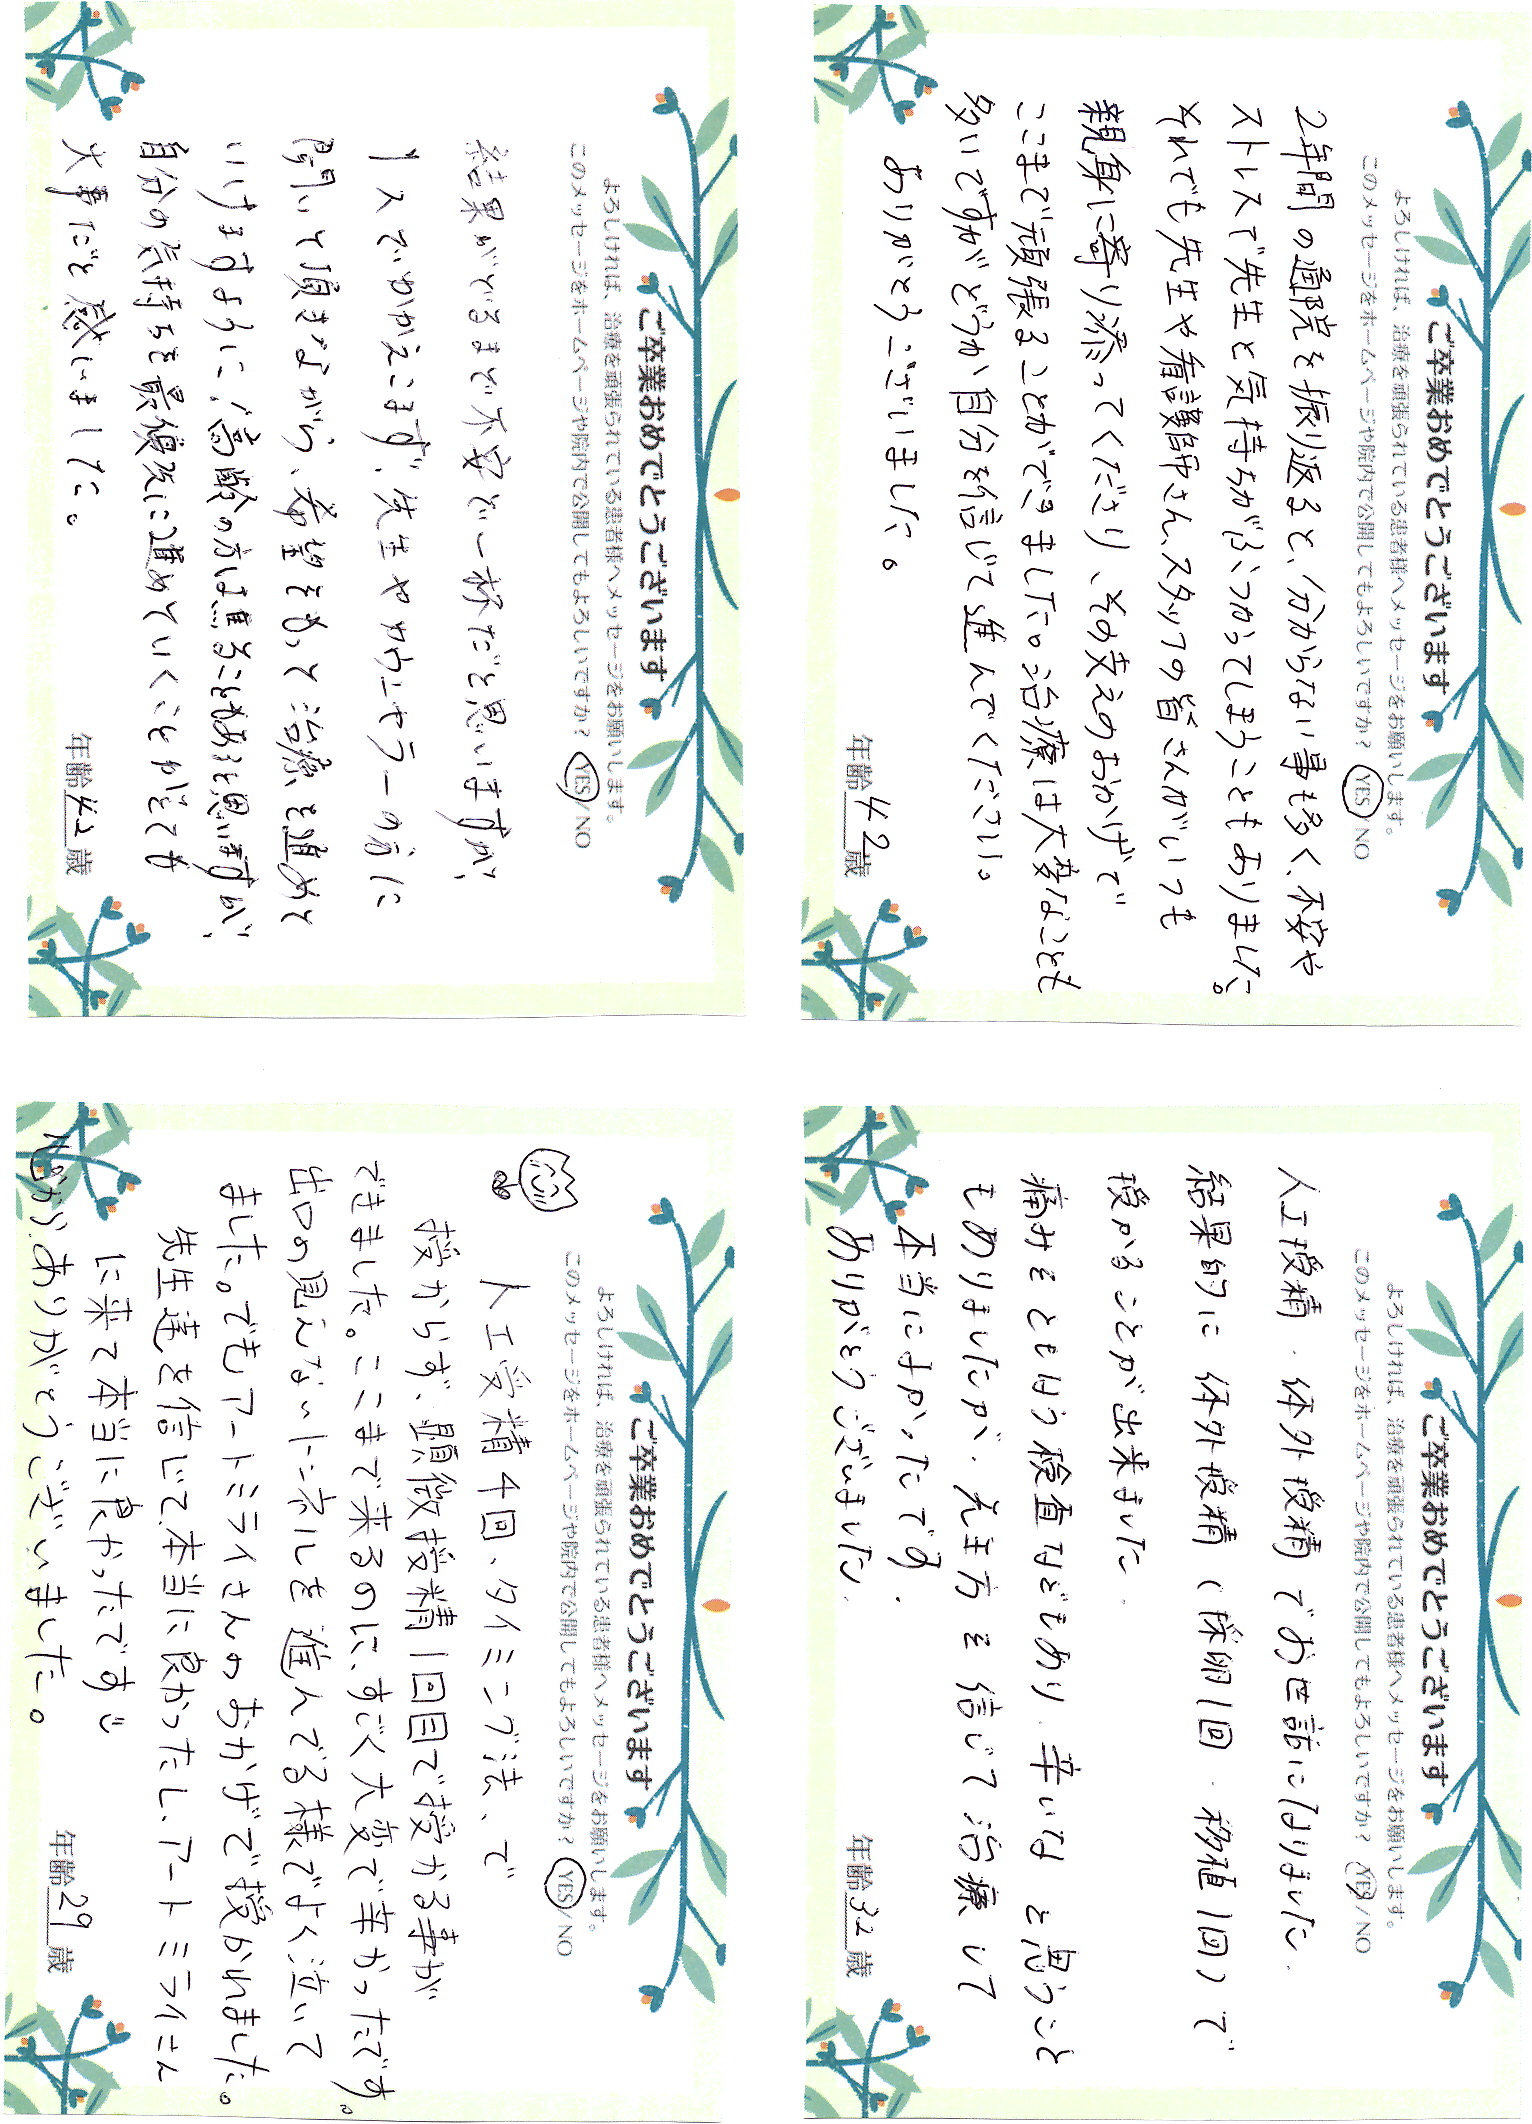 ご卒業おめでとうございます
よろしければ、治療を頑張られている患者様へメッセージをお願いします。
このメッセージをホームページや院内で公開してもよろしいですか？ YES/NO
2年間の通院を振り返ると、分からない事も多く、不安や
ストレスで先生と気持ちがぶつかってしまうこともありました。
それでも先生や看護師さん、スタッフの皆さんがいつも
親身に寄り添ってくださり、その支えのおかげで
ここまで頑張ることができました。治療は大変なことも
多いですがどうか自分を信じて進んでください。
ありがとうございました。
年齢 42 歳
ご卒業おめでとうございます
よろしければ、治療を頑張られている患者様へメッセージをお願いします。
このメッセージをホームページや院内で公開してもよろしいですか？ YES/NO
人工授精・体外授精でお世話になりました.
結果的に 体外授精（採卵1回・移植1回）で
授かることが出来ました.
痛みをともなう検査などもあり、辛いな と思うこと
もありましたが、先生方を信じて治療して
本当によかったです.
ありがとうございました.
年齢 32 歳
ご卒業おめでとうございます
よろしければ、治療を頑張られている患者様へメッセージをお願いします。
このメッセージをホームページや院内で公開してもよろしいですか？ YES/NO
結果がでるまで不安で一杯だと思いますが、
1人でかかえこまず、先生やカウンセラーの方に
聞いて頂きながら、希望をもって治療を進めて
いけますように、高齢の方は焦ることもあると思いますが、
自分の気持ちを最優先に進めていくことがとても
大事だと感じました。
年齢 42 歳
ご卒業おめでとうございます
よろしければ、治療を頑張られている患者様へメッセージをお願いします。
このメッセージをホームページや院内で公開してもよろしいですか？ YES/NO
人工受精4回、タイミング法、で
授からず、顕微授精1回目で授かる事が
できました。ここまで来るのに、すごく大変で辛かったです。
出口の見えないトンネルを進んでる様でよく泣いて
ました。でもアートミライさんのおかげで授かれました。
先生達を信じて、本当に良かったし、アートミライさん
に来て本当に良かったです!
心から、ありがとうございました。
年齢 29 歳